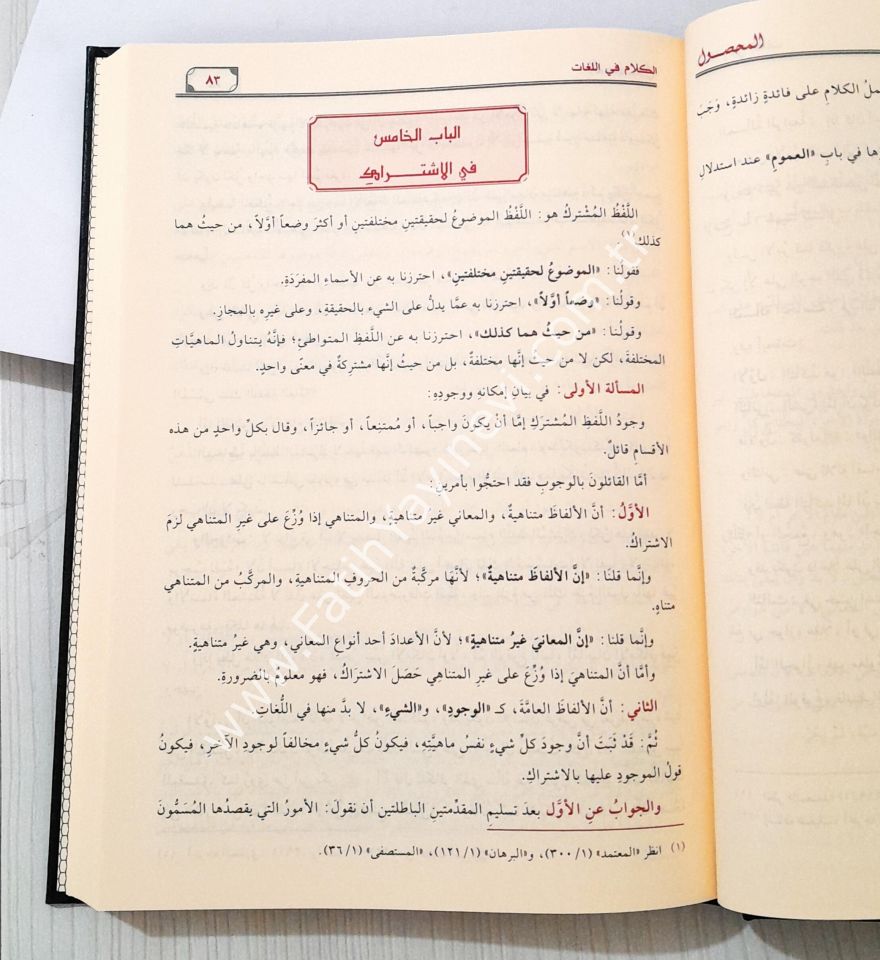 المحصول
مل الكلام على فائدةٍ زائدةٍ، وَجَبَ
ها في بابِ «العمومِ» عند استدلالِ
الكلام في اللغات
٨٣
الباب الخامس
في الاشتراك
اللَّفْظُ المُشْتركُ هو: اللَّفْظُ الموضوعُ لحقيقتينِ مختلفتينِ أو أكثرَ وضعاً أوَّلاً، من حيثُ هما
كذلك(١).
فقولُنا: «الموضوعُ لحقيقتينِ مختلفتينِ»، احترزنا به عن الأسماءِ المفرَدَةِ.
وقولُنا: «وضعاً أوَّلاً»، احترزنا به عمَّا يدلُّ على الشيءِ بالحقيقةِ، وعلى غيرِه بالمجازِ.
وقولُنا: «من حيثُ هما كذلك»، احترزنا به عن اللَّفظِ المتواطئِ؛ فإنَّهُ يتناولُ الماهيَّاتِ
المختلفةَ، لكن لا من حيثُ إنَّها مختلفةٌ، بل من حيثُ إنَّها مشتركةٌ في معنًى واحدٍ.
المسألة الأولى: في بيانِ إمكانهِ ووجودِهِ:
وجودُ اللَّفظِ المُشتَرَكِ إمَّا أنْ يكونَ واجباً، أو مُمتنِعاً، أو جائزاً، وقال بكلِّ واحدٍ من هذه
الأقسامِ قائلٌ.
أمَّا القائلونَ بالوجوبِ فقد احتجُّوا بأمرينِ:
الأوَّلُ: أنَّ الألفاظَ متناهيةٌ، والمعاني غير متناهيةٍ، والمتناهي إذا وُزِّعَ على غيرِ المتناهي لزمَ
الاشتراكُ.
وإنَّما قلنا: «إنَّ الألفاظَ متناهيةٌ»؛ لأنَّها مركَّبةٌ من الحروفِ المتناهيةِ، والمركَّبُ من المتناهي
متناهٍ.
وإنَّما قلنا: «إنَّ المعانيَ غيرُ متناهيةٍ»؛ لأنَّ الأعدادَ أحد أنواعِ المعاني، وهي غيرُ متناهيةٍ.
وأمَّا أنَّ المتناهيَ إذا وُزِّعَ على غيرِ المتناهي حَصَلَ الاشتراكُ، فهو معلومٌ بالضرورةِ.
الثاني: أنَّ الألفاظَ العامَّةَ، كـ «الوجودِ»، و«الشيءِ»، لا بدَّ منها في اللُّغاتِ.
ثُمَّ: قَدْ ثَبَتَ أنَّ وجودَ كلِّ شيءٍ نفسُ ماهيَّتِهِ، فيكونُ كلُّ شيءٍ مخالفاً لوجودِ الآخرِ، فيكونُ
قولُ الموجودِ عليها بالاشتراكِ.
والجوابُ عنِ الأوَّلِ بعدَ تسليمِ المقدِّمتينِ الباطلتينِ أن نقولَ: الأمورُ التي يقصدُها المُسَمُّونَ
(١) انظر «المعتمد» (١/ ٣٠٠)، و«البرهان» (١/ ١٢١)، «المستصفى» (١/ ٣٦).
www.FatihYayinevi.com.tr